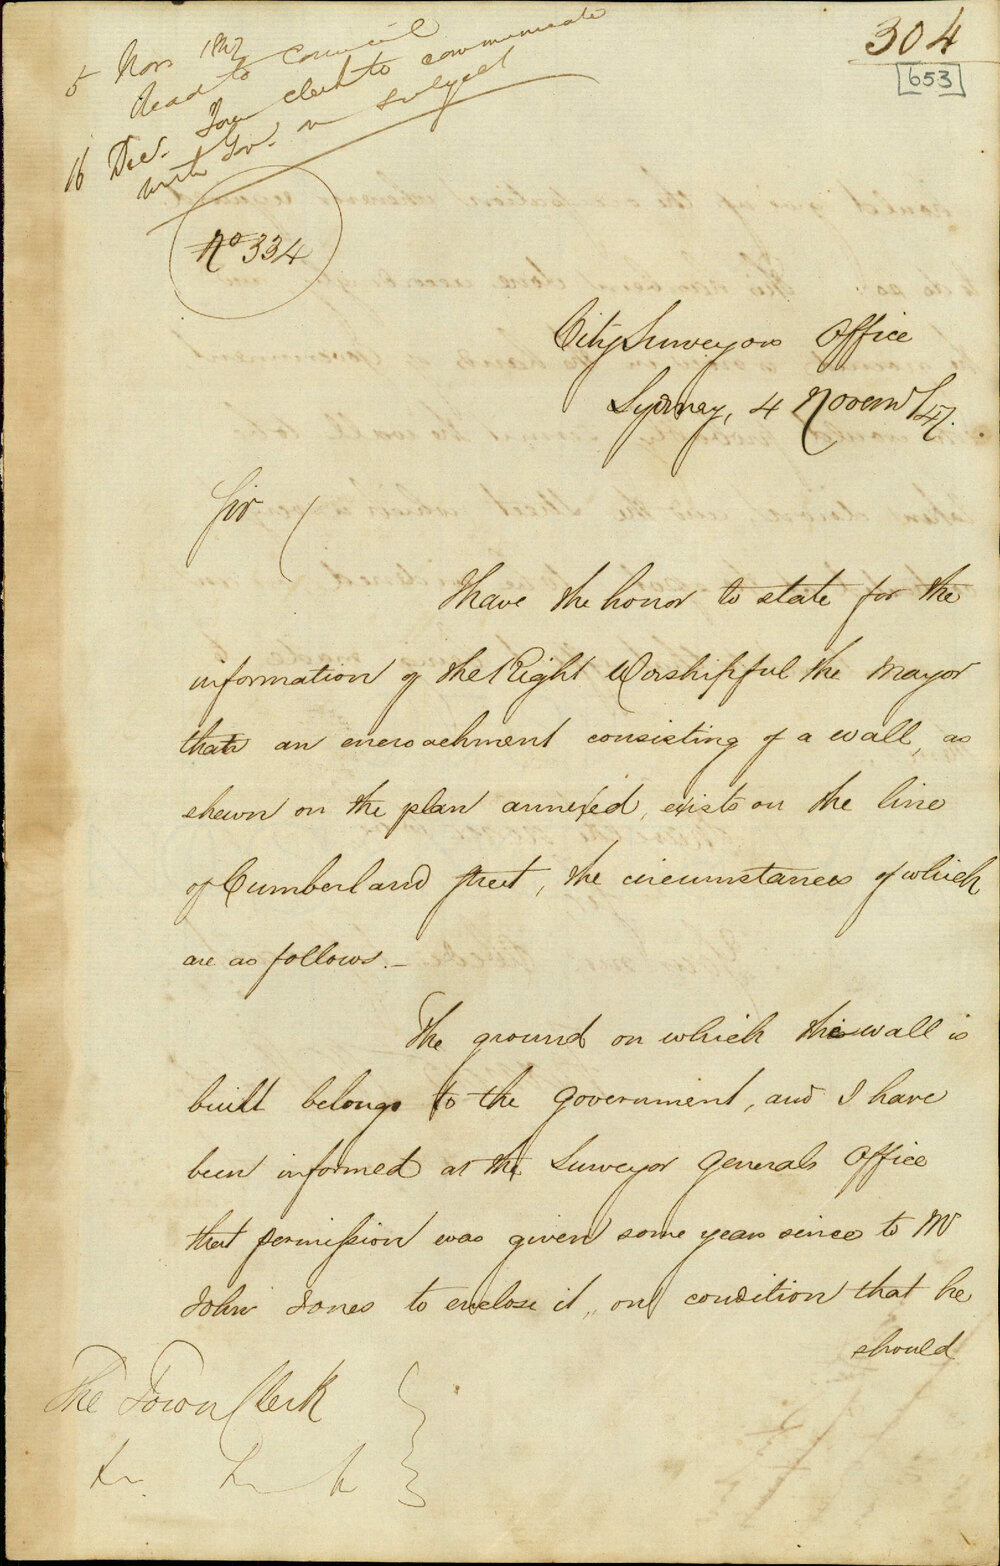 304
653
5 Nov 1847
Read to Council
16 Dec. Town Clerk to communicate
with Gov. on subject
No 334
City Surveyors Office
Sydney, 4 Novemr /47.
Sir
I have the honor to state for the
information of the Right Worshipful the Mayor
that an encroachment consisting of a wall, as
shewn on the plan annexed, exists on the line
of Cumberland street, the circumstances of which
are as follows._
The ground on which this wall is
built belongs to the Government, and I have
been informed at the Surveyor Generals Office
that permission was given some years since to Mr
John Jones to enclose it, on condition that he
should
The Town Clerk